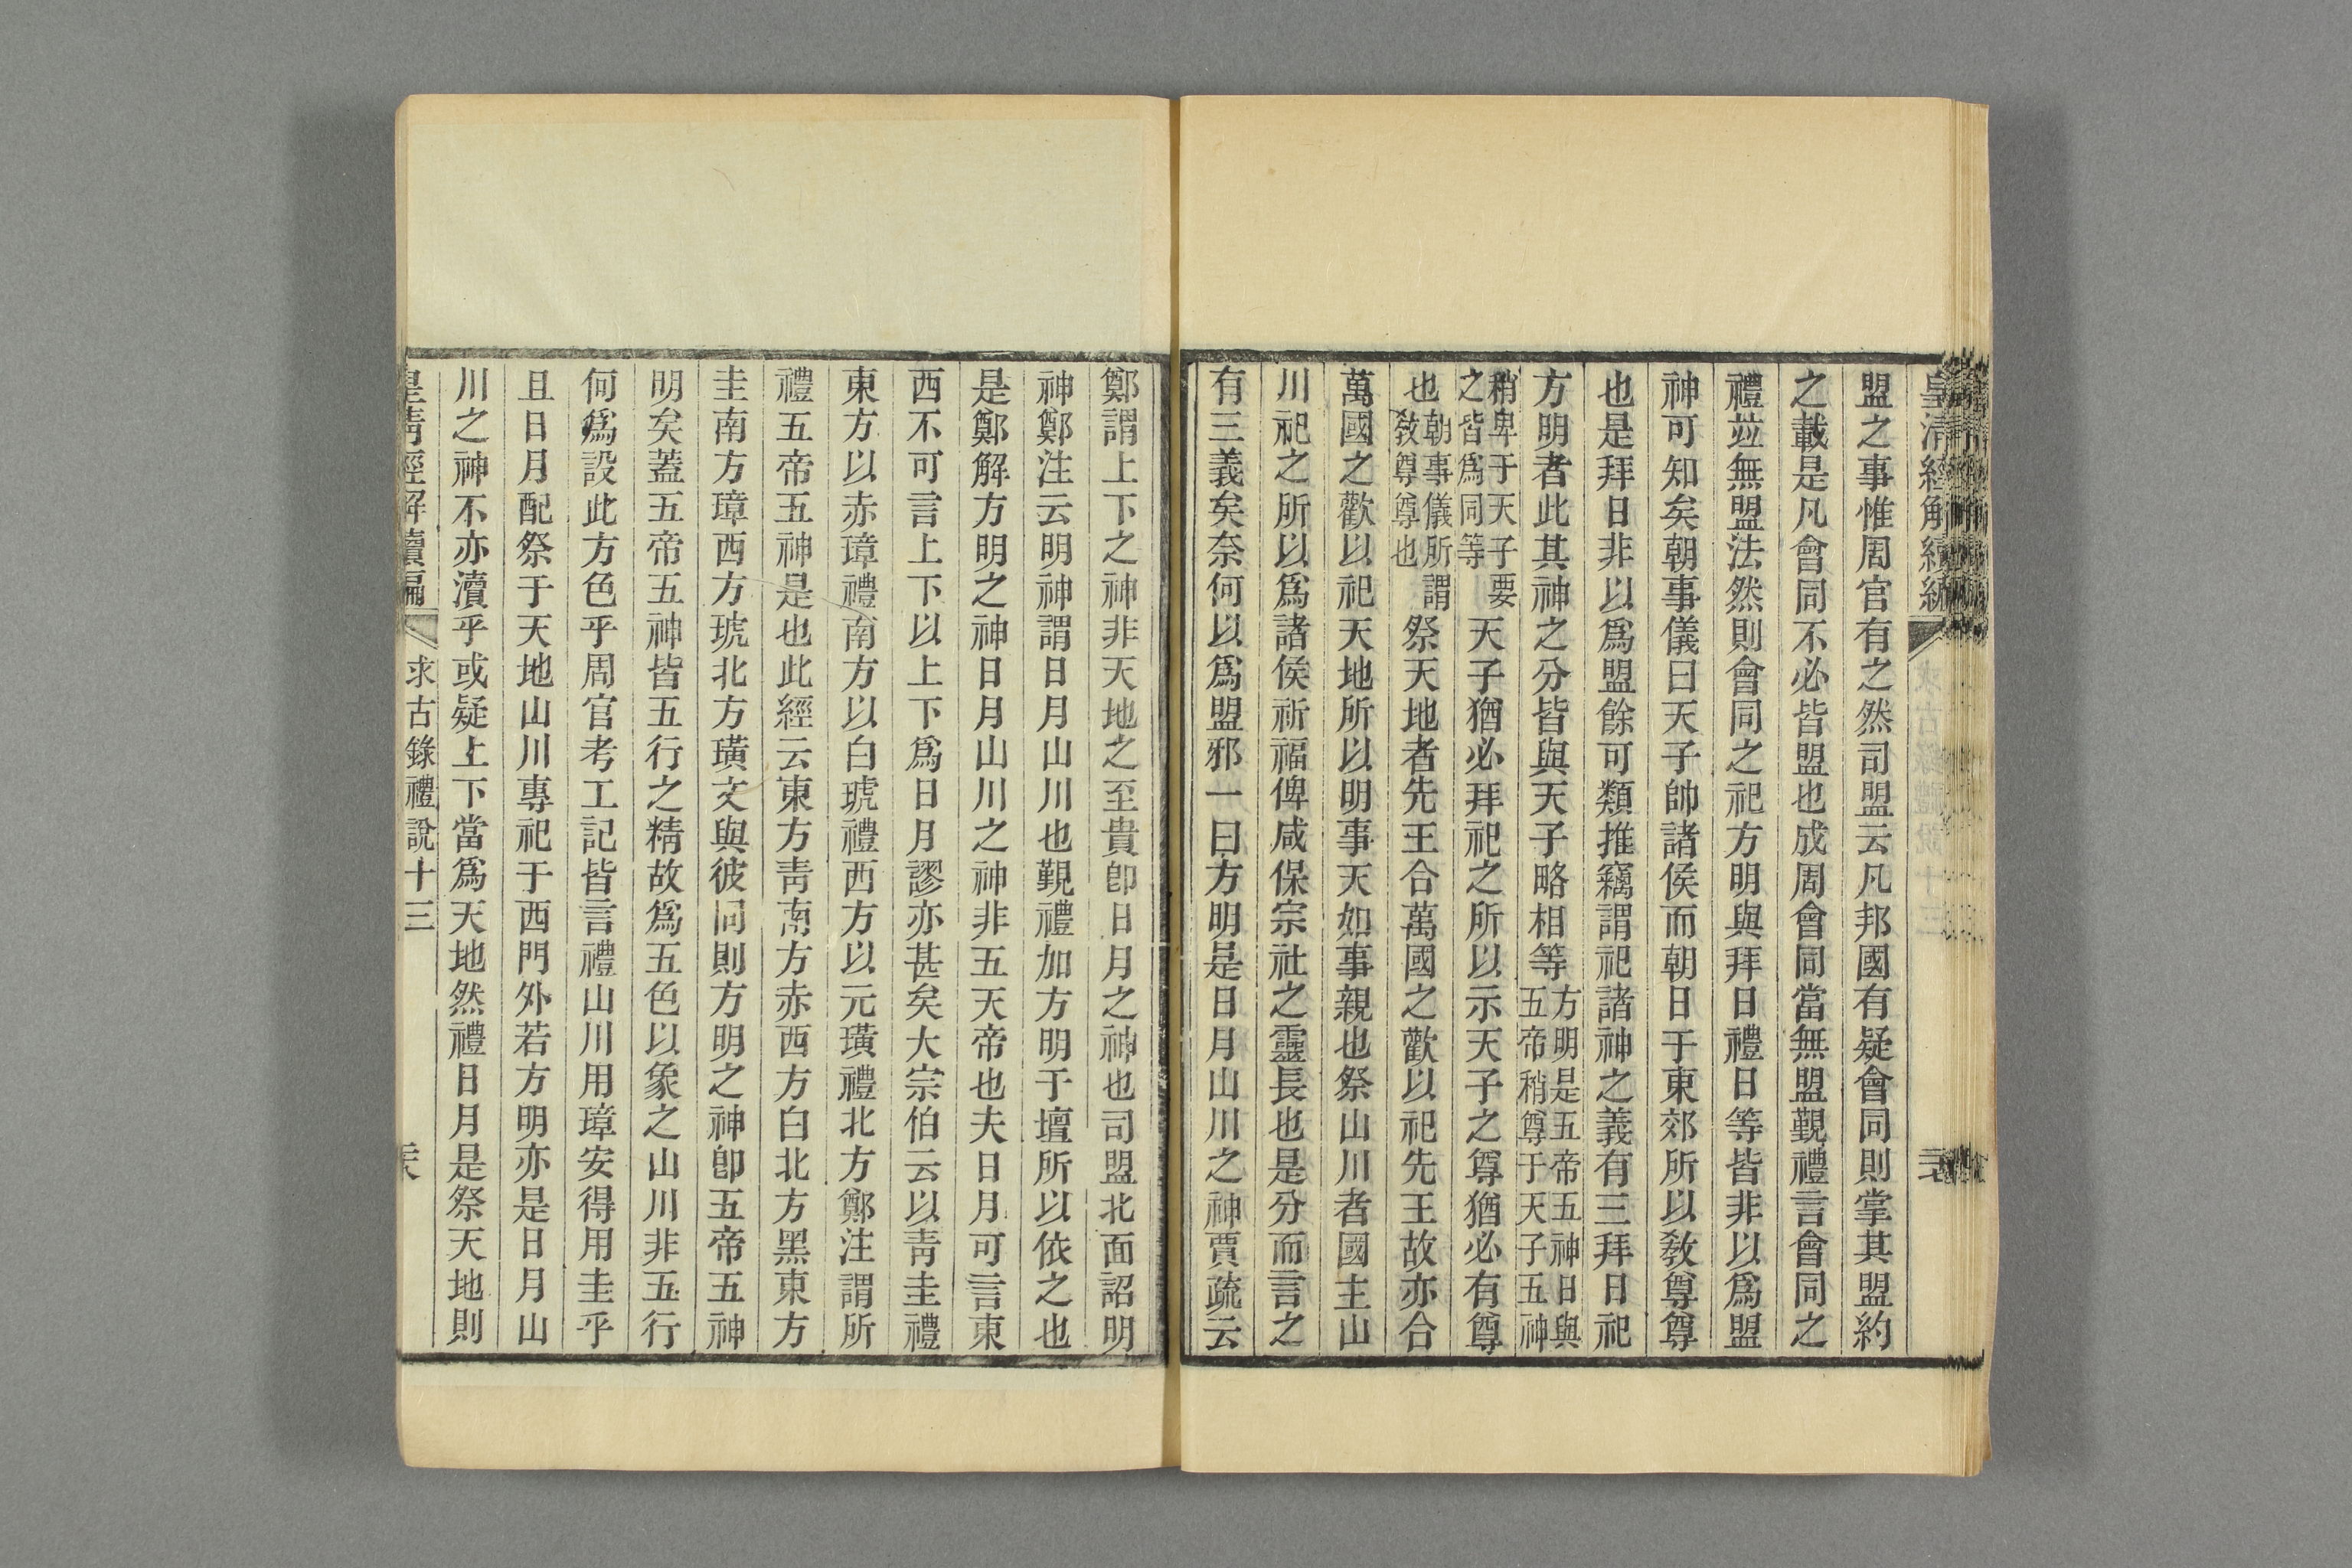 皇清經解續編
盟之事惟周官有之然司盟云凡邦國有疑會同則掌其盟約
之載是凡會同不必皆盟也成周會同當無盟覲禮言會同之
禮竝無盟法然則會同之祀方明與拜日禮日等皆非以爲盟
神可知矣朝事儀曰天子帥諸侯而朝日于東郊所以敎尊尊
也是拜日非以爲盟餘可類推竊謂祀諸神之義有三拜日祀
方明者此其神之分皆與天子略相等方明是五帝五神日與五帝稍尊于天子五神
稍卑于天子要之皆爲同等天子猶必拜祀之所以示天子之尊猶必有尊
也朝事儀所謂敎尊尊也祭天地者先王合萬國之歡以祀先王故亦合
萬國之歡以祀天地所以明事天如事親也祭山川者國主山
川祀之所以爲諸侯祈福俾咸保宗社之靈長也是分而言之
有三義矣奈何以爲盟邪一曰方明是日月山川之神賈疏云
鄭謂上下之神非天地之至貴卽日月之神也司盟北面詔明
神鄭注云明神謂日月山川也覲禮加方明于壇所以依之也
是鄭解方明之神日月山川之神非五天帝也夫日月可言東
西不可言上下以上下爲日月謬亦甚矣大宗伯云以靑圭禮
東方以赤璋禮南方以白琥禮西方以元璜禮北方鄭注謂所
禮五帝五神是也此經云東方靑南方赤西方白北方黑東方
圭南方璋西方琥北方璜文與彼同則方明之神卽五帝五神
明矣蓋五帝五神皆五行之精故爲五色以象之山川非五行
何爲設此方色乎周官考工記皆言禮山川用璋安得用圭乎
且日月配祭于天地山川專祀于西門外若方明亦是日月山
川之神不亦瀆乎或疑上下當爲天地然禮日月是祭天地則
皇淸經解續編 求古錄禮說十三